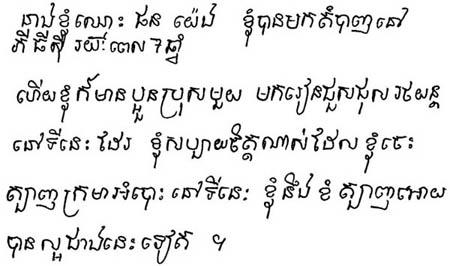 នាងខ្ញុំឈោះ ផន យ៉េង ខ្ញុំបានមកតំបាញនៅ
ភីធីស៊ី រយៈពេល 7 ឆ្នាំ
ហើយខ្ញុំក៏មានប្អូនប្រុសមួយ មករៀនជួសជុលរថយន្ត
នៅទីនេះ ដែរ ខ្ញុំសប្បាយចិត្តណាស់ដែល ខ្ញុំចេះ
ត្បាញក្រមាអំបោះ នៅទីនេះ ខ្ញុំនឹង ខំ ត្បាញអោយ
បានល្អជាងនេះ ទៀត ។